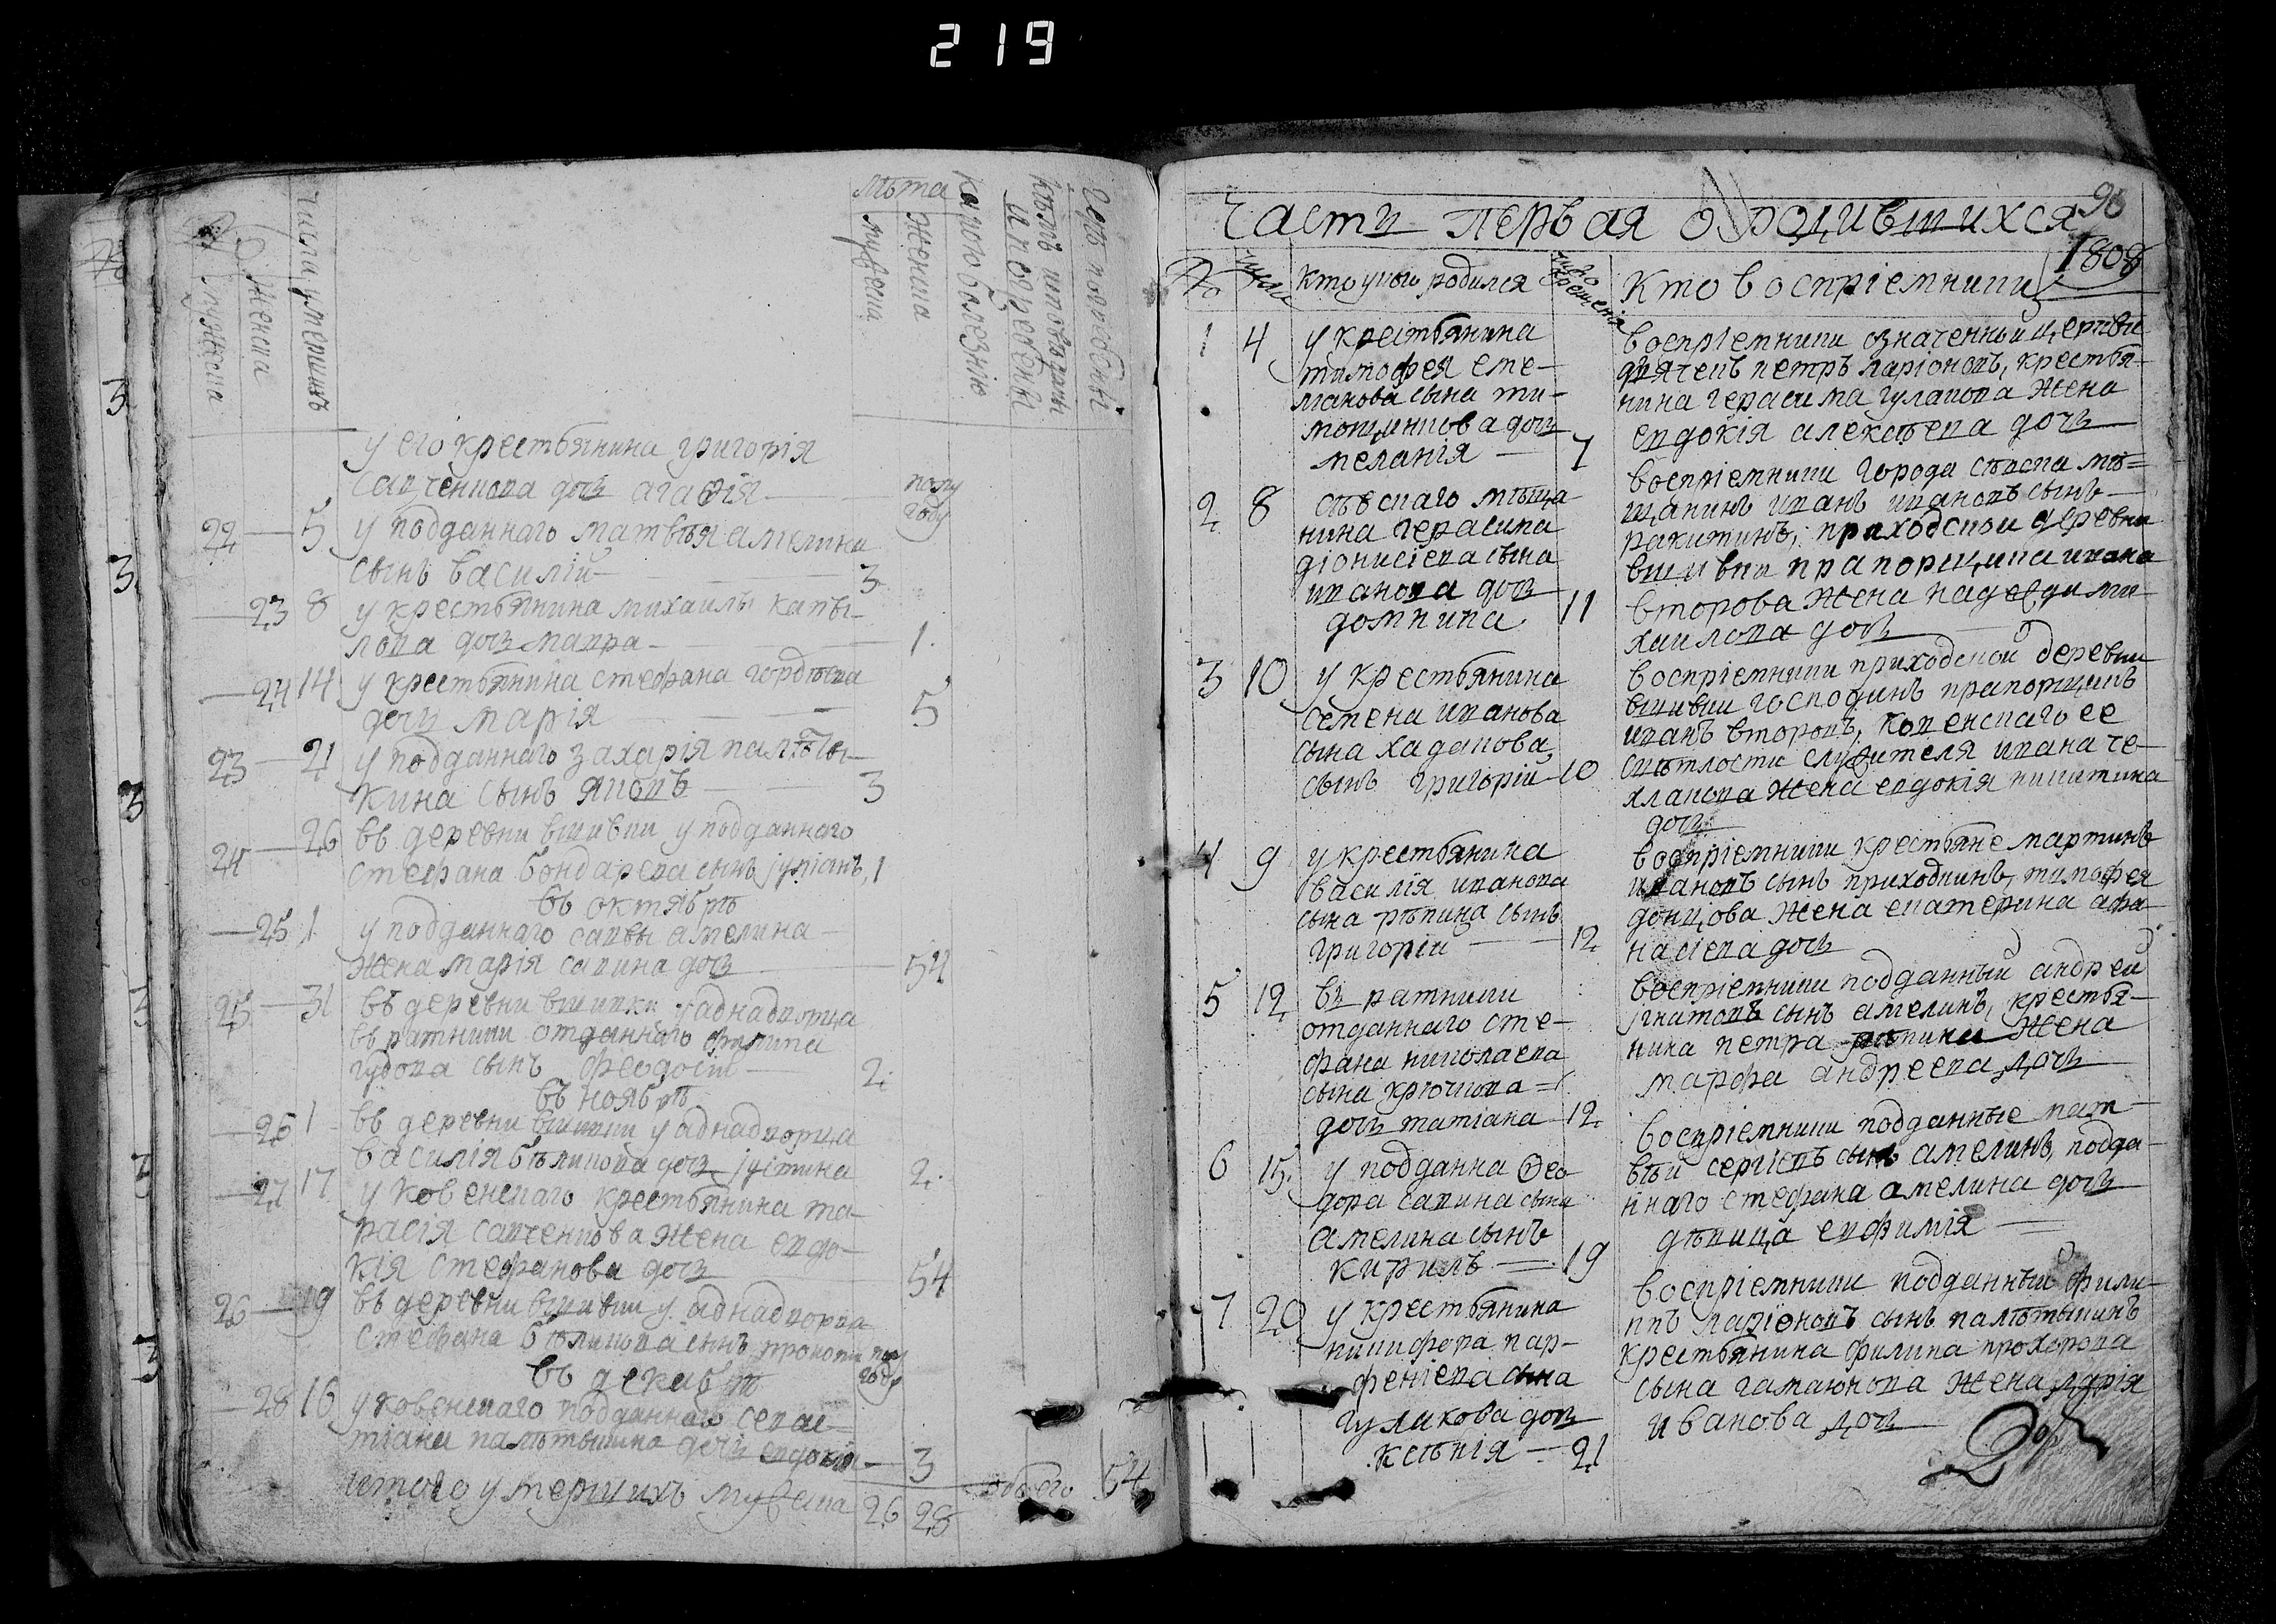 219
лѣта
мужеска
женска
числа умершихъ
мужеска
женска
какою болезнію
у его крестьянина григорія
савченкова дочь агафія — полу
году
22 — 5 у подданнаго матвѣя амелина
сынъ василій — 3
— 23 8 у крестьянина михаилы капы-
лова дочь мавра — 1
— 24 14 у крестьянина стефана гордѣева
дочь марія — 5
23 — 21 у подданнаго захарія палѣты-
кина сынъ яковъ — 3
24 — 26 въ деревни вшивки у подданнаго
стефана бондарева сынъ іуліанъ, 1
въ октябрѣ
— 25 1 у подданнаго саввы амелина
жена марія савина дочь — 54
25 — 31 въ деревни вшивки у аднадворца
въ ратники отданнаго филипа
губова сынъ феодосій — 2
въ ноябрѣ
— 26 1 въ деревни вшивки у аднадворца
василія бѣликова дочь іустина 2
— 27 17 у ковенскаго крестьянина та-
расія савченкова жена евдо-
кія стефанова дочь 54
26 — 19 въ деревни вшивки у аднадворца
стефана бѣликова сынъ прокопи полу
году
въ декабрѣ
— 28 16 у ковенскаго подданнаго севас-
тіана палѣтыкина дочь евдокія — 3
итого умершихъ мужеска 26 28 обоего 54
90
части первая о родившихся
1808
№ числа кто у кого родился число крещенія кто воспріемники
1 4 у крестьянина
тимофея еме-
лианова сына ти-
мощенкова дочь
меланія — 7
воспріемники означенной церкви
дьячекъ петръ ларіоновъ, крестья-
нина герасима гулакова жена
евдокія алексѣева дочь
2 8 сѣвскаго мѣща
нина герасима
діонисіева сына
иванова дочь
домника 11
воспріемники города сѣвска мѣ=
щанинъ иванъ ивановъ сынъ
ракитинъ, приходской деревни
вшивки прапорщика ивана
второва жена надежди ми-
хаилова дочь
3 10 у крестьянина
семена иванова
сына хаданова
сынъ григорій — 10
воспріемники приходской деревни
вшивки господинъ прапорщикъ
иванъ второвъ, ковенскаго ее
свѣтлости служителя ивана че-
хлакова жена евдокія никитина
дочь
4 9 у крестьянина
василія иванова
сына рѣпина сынъ
григорій — 12
воспріемники крестьяне мартинъ
ивановъ сынъ приходкинъ, тимофея
донцова жена екатерина афа-
насіева дочь
5 12 въ ратники
отданнаго сте-
фана николаева
сына крючкова =
дочь татіана 12
воспріемники подданный андрей
игнатовъ сынъ амелинъ, крестья-
нина петра рѣпина жена
марфа андреева дочь
6 15 у подданна ѳео
дора савина сына
амелина сынъ
кирилъ — 19
воспріемники подданные мат-
вѣй сергіевъ сынъ амелинъ, подда-
ннаго стефана амелина дочь
дѣвица евфимія
7 20 у крестьянина
никифора пар-
феніева сына
гулакова дочь
ксѣнія — 21
воспріемники подданный фили-
ппъ ларіоновъ сынъ палѣтыкинъ
крестьянина филипа прохорова
сына гамаюнова жена марія
иванова дочь